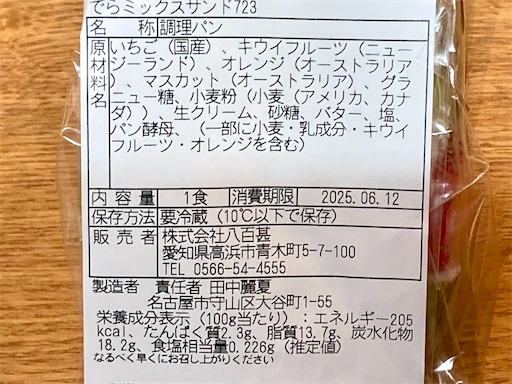 でらミックスサンド723
名 称 調理パン
原材料名 いちご（国産）、キウイフルーツ（ニュー
ジーランド）、オレンジ（オーストラリア
）、マスカット（オーストラリア）、グラ
ニュー糖、小麦粉（小麦（アメリカ、カナ
ダ））、生クリーム、砂糖、バター、塩、
パン酵母、（一部に小麦・乳成分・キウイ
フルーツ・オレンジを含む）
内 容 量 1食 消費期限 2025.06.12
保存方法 要冷蔵（10℃以下で保存）
販 売 者 株式会社八百甚
愛知県高浜市青木町5-7-100
TEL 0566-54-4555
製造者 責任者 田中麗夏
名古屋市守山区大谷町1-55
栄養成分表示（100g当たり）：エネルギー205
kcal、たんぱく質2.3g、脂質13.7g、炭水化物
18.2g、食塩相当量0.226g（推定値）
なるべく早くにお召し上がりください